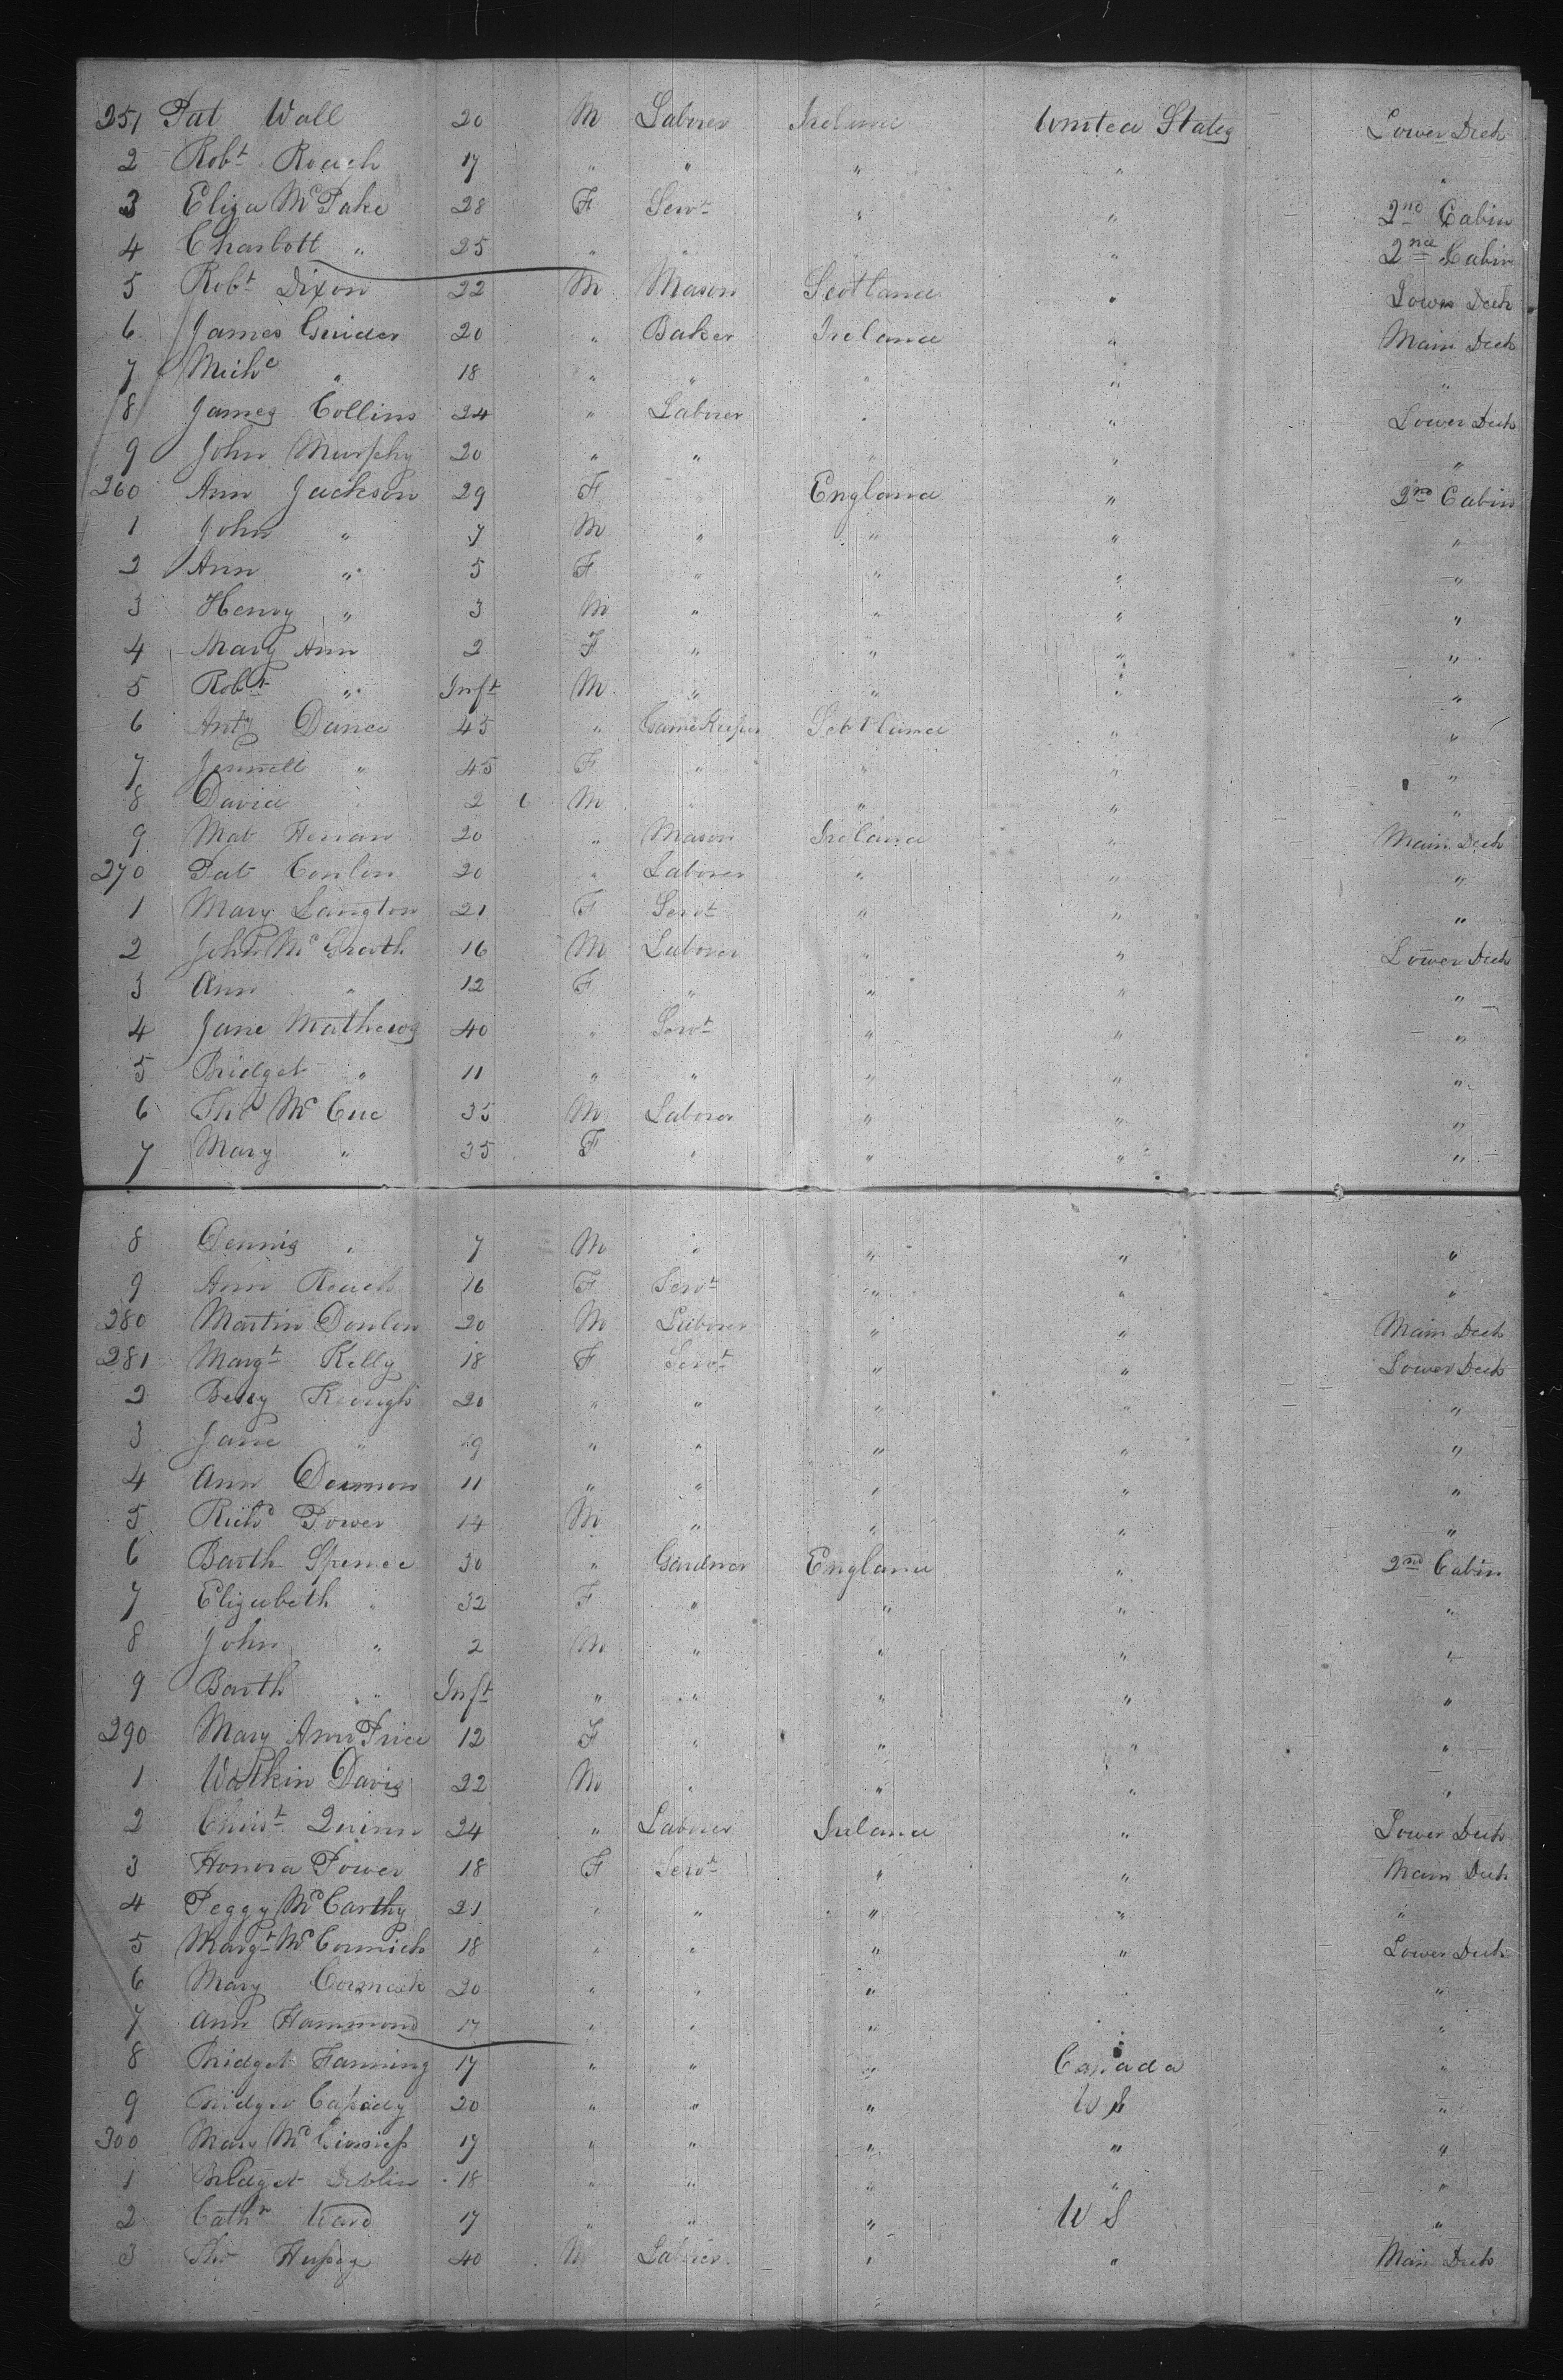 251 Pat Wall 20 M Laborer Ireland United States Lower Deck
2 Robt Roach 17 " " " " "
3 Eliza McPake 28 F Servt " " 2nd Cabin
4 Charlott " 25 " " " " 2nd Cabin
5 Robt Dixon 22 M Mason Scotland " Lower Deck
6 James Guider 20 " Baker Ireland " Main Deck
7 Michl " 18 " " " " "
8 James Collins 24 " Laborer " " Lower Deck
9 John Murphy 20 " " " " "
260 Ann Jackson 29 F " England " 2nd Cabin
1 John " 7 M " " " "
2 Ann " 5 F " " " "
3 Henry " 3 M " " " "
4 Mary Ann 2 F " " " "
5 Robt " Inft M " " " "
6 Anty Dance 45 " GameKeeper Scotland " "
7 Jennett " 45 F " " " "
8 David " 2 M " " " "
9 Mat Henan 20 " Mason Ireland " Main Deck
270 Pat Conlon 20 " Laborer " " "
1 Mary Langton 21 F Servt " " "
2 John McGrath 16 M Laborer " " Lower Deck
3 Ann " 12 F " " " "
4 Jane Mathews 40 " Servt " " "
5 Bridget " 11 " " " " "
6 Thos McCue 35 M Laborer " " "
7 Mary " 35 F " " " "
8 Dennis " 7 M " " " "
9 Ann Roach 16 F Servt " " "
280 Martin Donlon 20 M Laborer " " Main Deck
281 Margt Kelly 18 F Servt " " Lower Deck
2 Bessy Keough 20 " " " " "
3 Jane " 9 " " " " "
4 Ann 11 " " " " "
5 Richd Power 14 M " " " "
6 Barth Spence 30 " Gardner England " 2nd Cabin
7 Elizabeth " 32 F " " " "
8 John " 2 M " " " "
9 Barth " Inft " " " " "
290 Mary Ann Price 12 F " " " "
1 Watkin Davis 22 M " " " "
2 Christ Quinn 24 " Laborer Ireland " Lower Deck
3 Honora Power 18 F Servt " " Main Deck
4 Peggy McCarthy 21 " " " " "
5 Margt McCormick 18 " " " " Lower Deck
6 Mary Cormick 20 " " " " "
7 Ann Hammond 17 " " " " "
8 Bridget Fanning 17 " " " Canada "
9 Bridget Cassidy 20 " " " U S "
300 Mary McGinness 17 " " " " "
1 Bridget Deblin 18 " " " " "
2 Cathn Ward 17 " " " U S "
3 Thos Hussey 40 M Laborer " " Main Deck